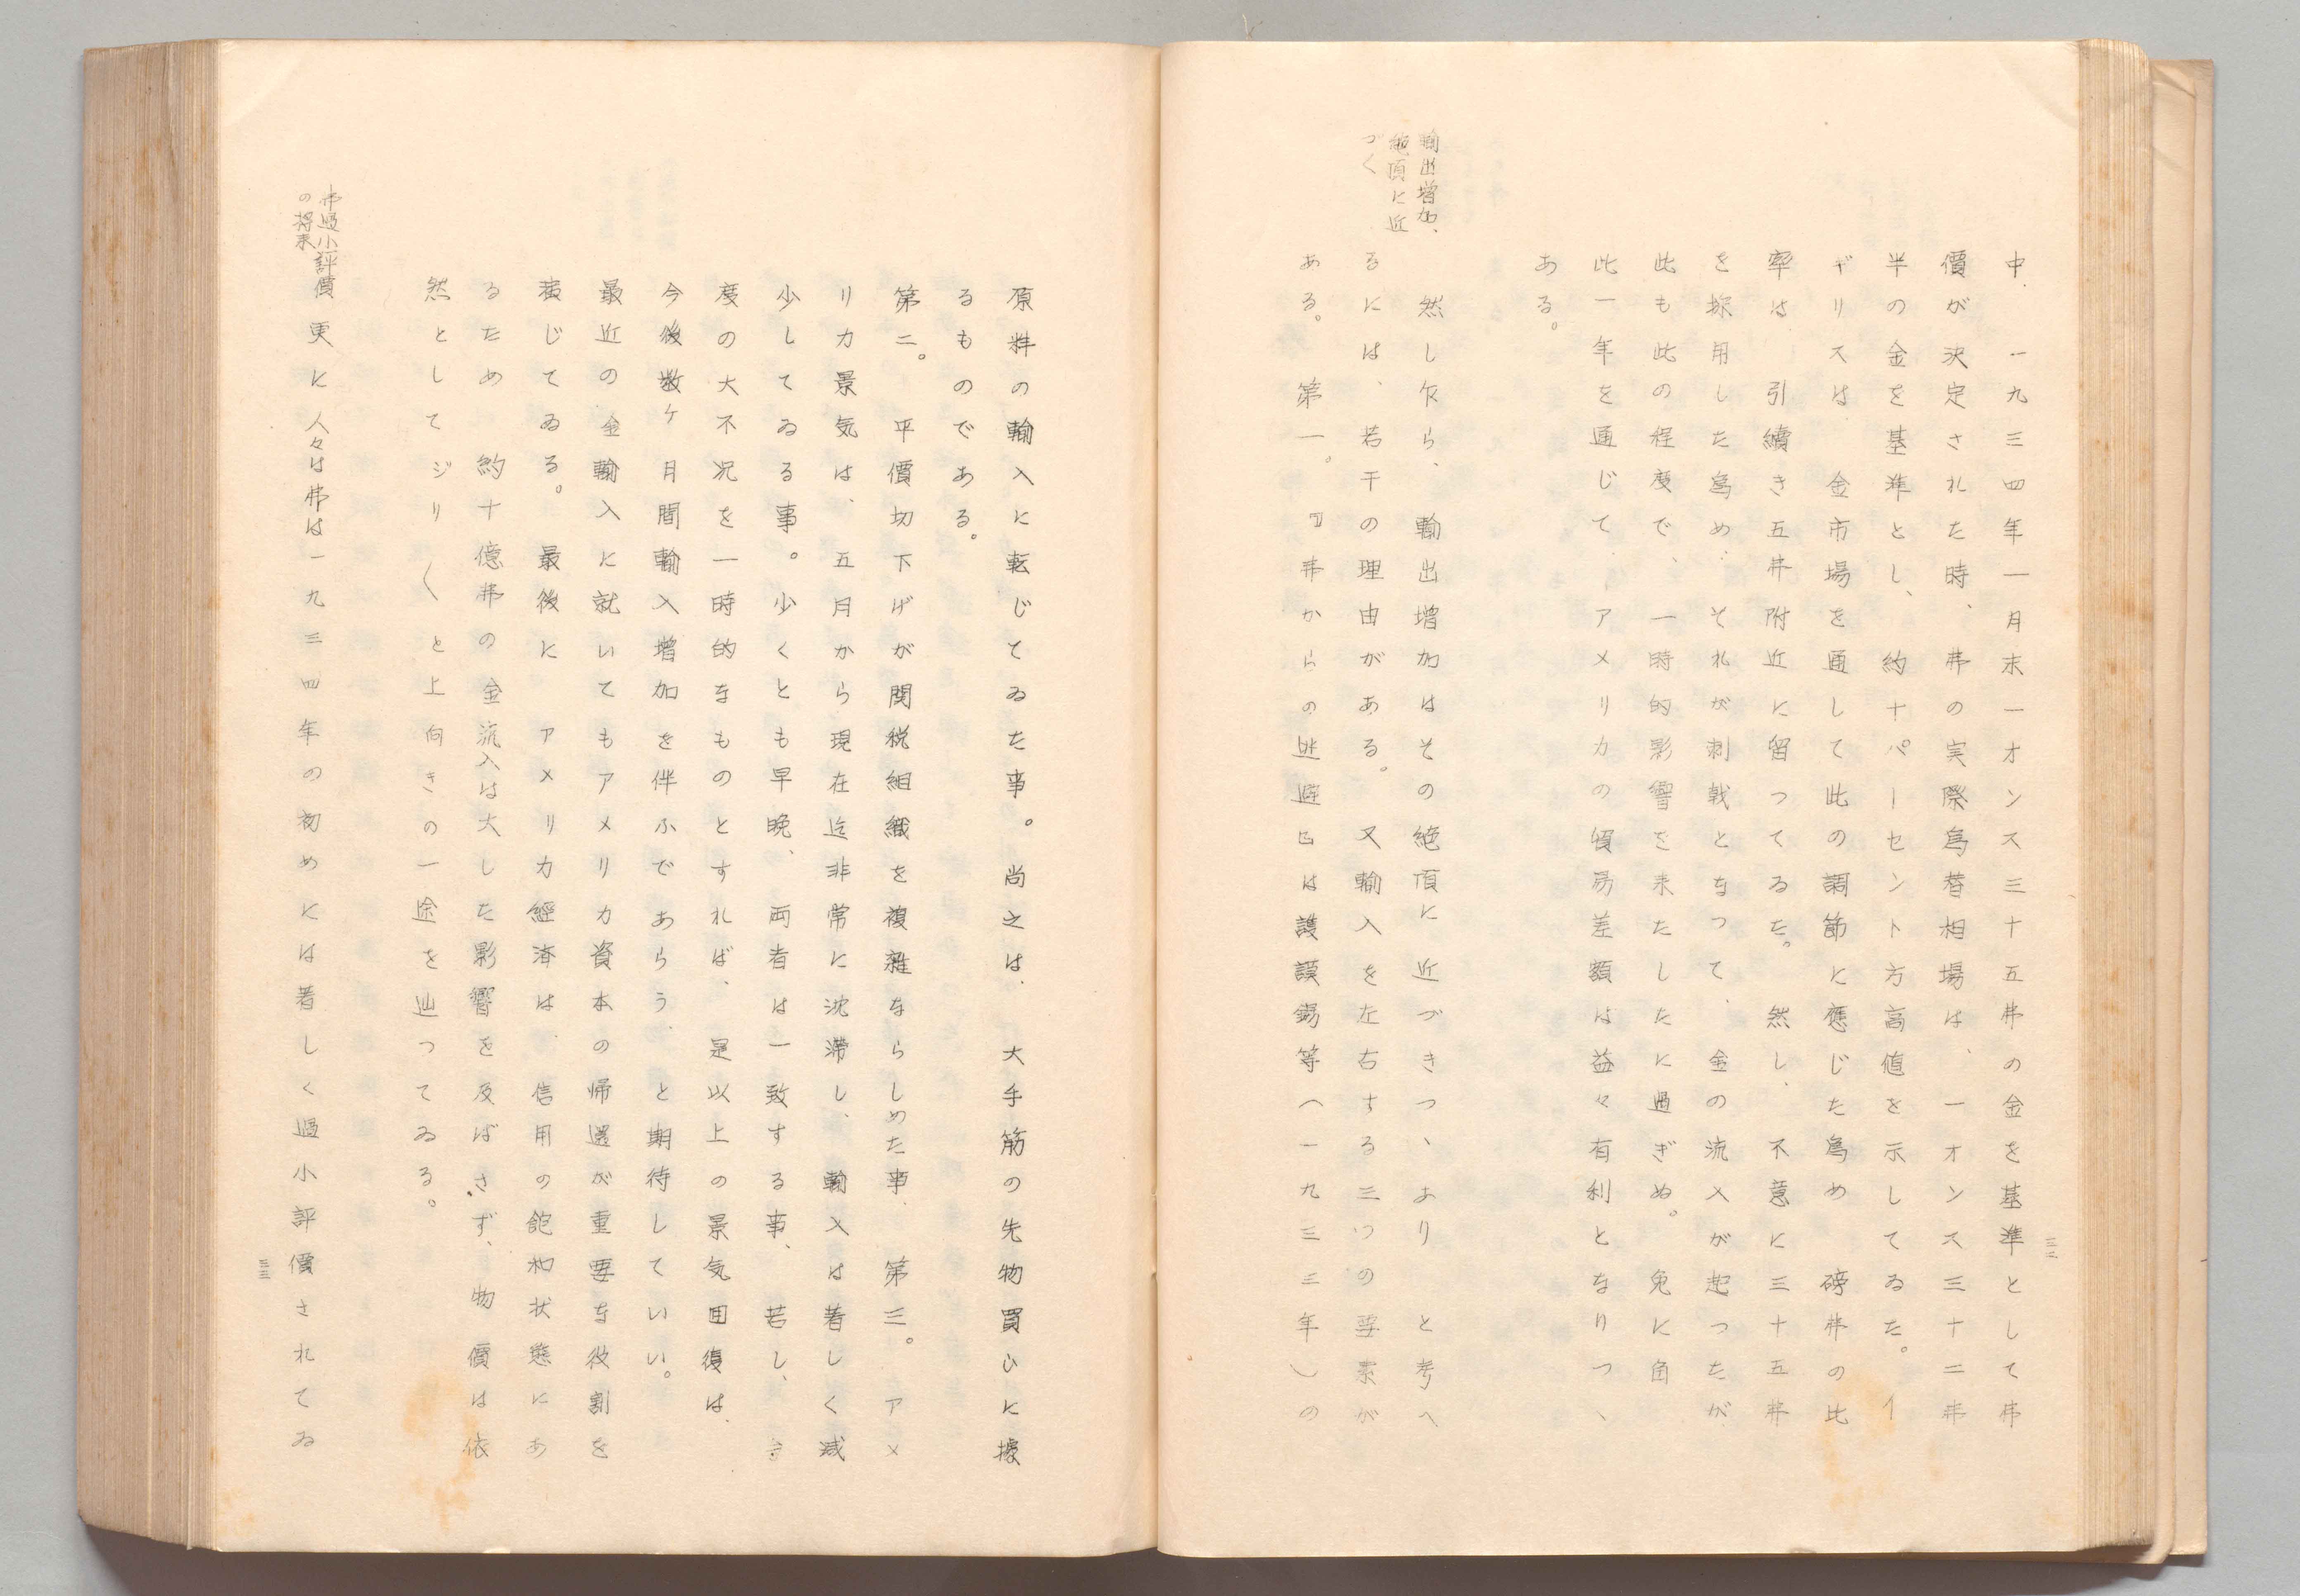 三二
中、一九三四年一月末一オンス三十五弗の金を基準として弗
價が決定された時、弗の実際爲替相場は、一オンス三十二弗
半の金を基準とし、約十パーセント方高値を示してゐた。イ
ギリスは、金市場を通して此の調節に應じた爲め、磅弗の比
率は、引續き五弗附近に留つてゐた。然し、不意に三十五弗
を採用した爲め、それが刺戟となつて、金の流入が起つたが、
此も此の程度で、一時的影響を来たしたに過ぎぬ。兎に角
此一年を通じて、アメリカの貿易差額は益々有利となりつゝ
ある。
輸出増加、
絶頂に近
づく
然し乍ら、輸出増加はその絶頂に近づきつゝあり、と考へ
るには、若干の理由がある。又輸入を左右する三つの要素が
ある。第一。『弗からの逃避』は護謨錫等（一九三三年）の
原料の輸入に転じてゐた事。尚之は、大手筋の先物買ひに據
るものである。
第二。平價切下げが関税組織を複雑ならしめた事、第三。アメ
リカ景気は、五月から現在迄非常に沈滞し、輸入は著しく減
少してゐる事。少くとも早晩、両者は一致する事、若し、今
度の大不況を一時的なものとすれば、是以上の景気囘復は、
今後数ケ月間輸入増加を伴ふであらう、と期待していい。
最近の金輸入に就いてもアメリカ資本の帰還が重要な役割を
演じてゐる。最後に、アメリカ經済は、信用の飽和状態にあ
るため、約十億弗の金流入は大した影響を及ばさず、物價は依
然としてジリ〱と上向きの一途を辿つてゐる。
弗過小評價
の将来
更に人々は弗は一九三四年の初めには著しく過小評價されてゐ
三三